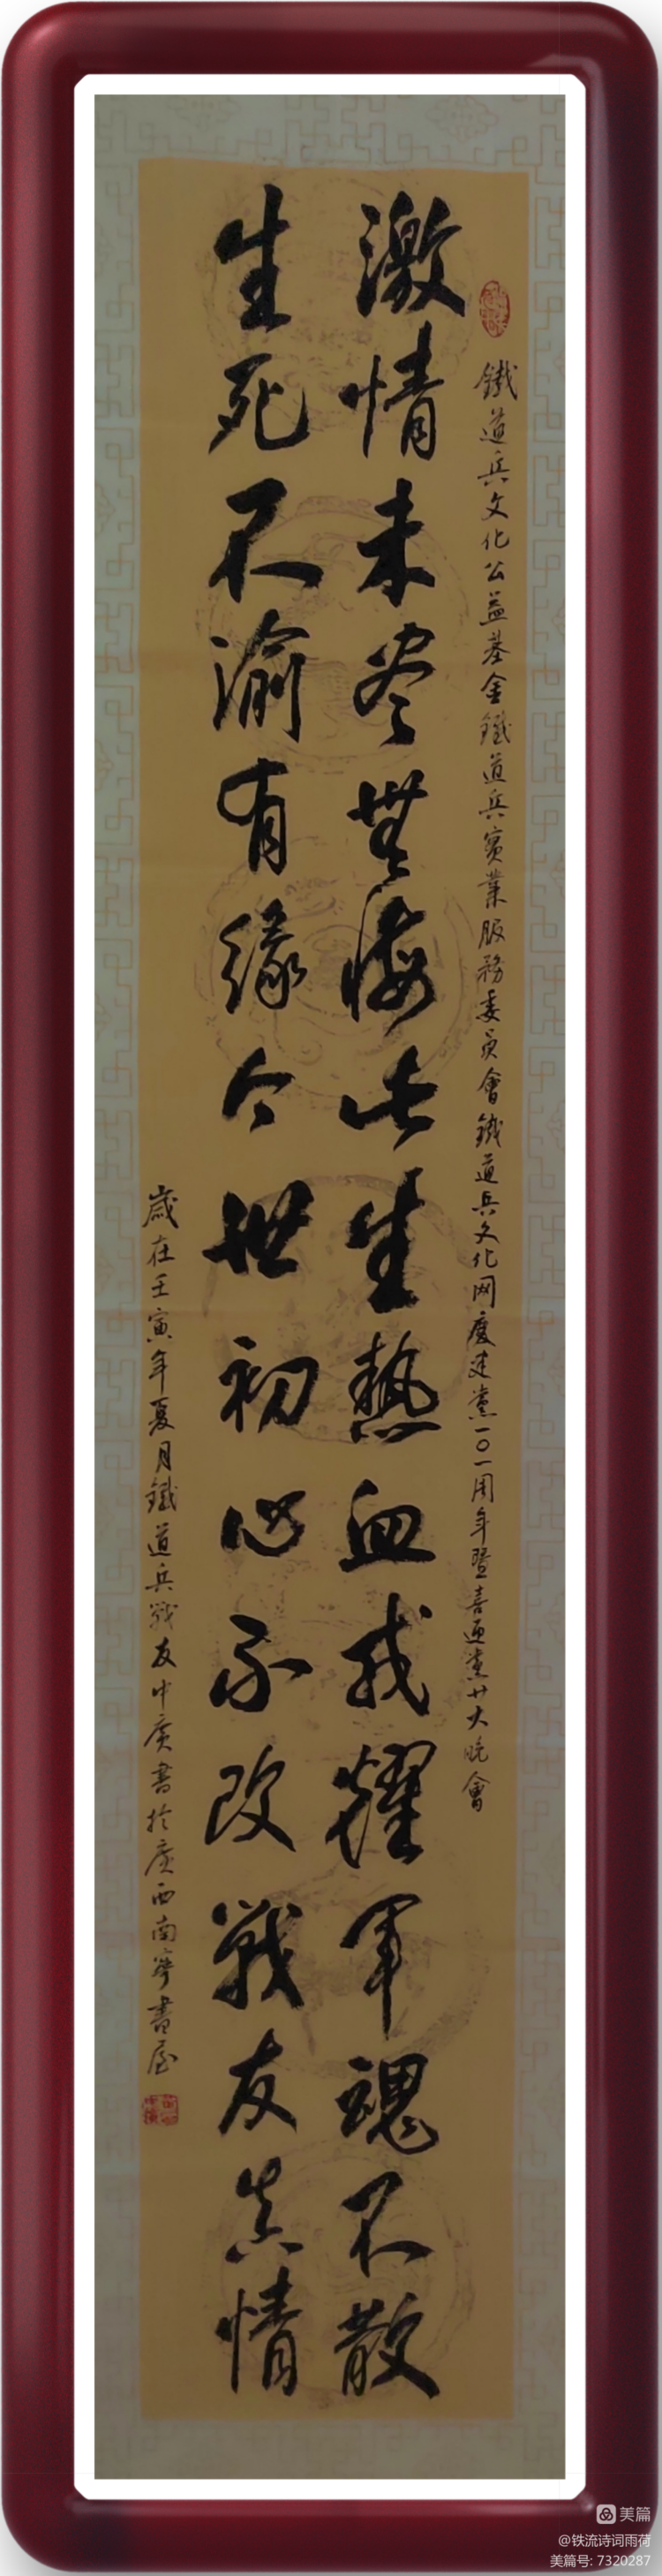 鐵道兵文化公益基金鐵道兵實業服務委員會鐵道兵文化网慶建黨一〇一周年暨喜迎黨廿大晚會
激情未尽無悔此生熱血成耀軍魂不散
生死不渝有緣今世初心不改戰友真情
歲在壬寅年夏月鐵道兵戰友中廣書於廣西南寧書屋
美篇
@铁流诗词雨荷
美篇号: 7320287